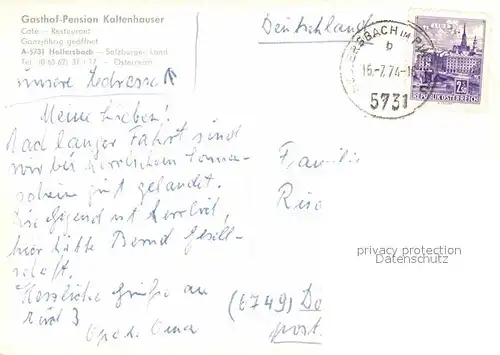 Gasthof-Pension Kaltenhauser
Café – Restaurant
Ganzjährig geöffnet
A-5731 Hollersbach – Salzburger Land
Tel. (0 65 62) 31 - 17 - Österreich
unsere Adresse ↑
Deutschland
5731 HOLLERSBACH IM
b
15.-7.74-1
5731
2.50
REPUBLIK ÖSTERREICH
Meine Lieben!
Nach langer Fahrt sind
wir bei herrlichem Sonnen-
schein gut gelandet.
Die Gegend ist herrlich,
hier hätte Bernd Gesell-
schaft.
Herzliche Grüße an
Euch 3
Opa u. Oma
Familie
(6749)
post.
privacy protection
Datenschutz